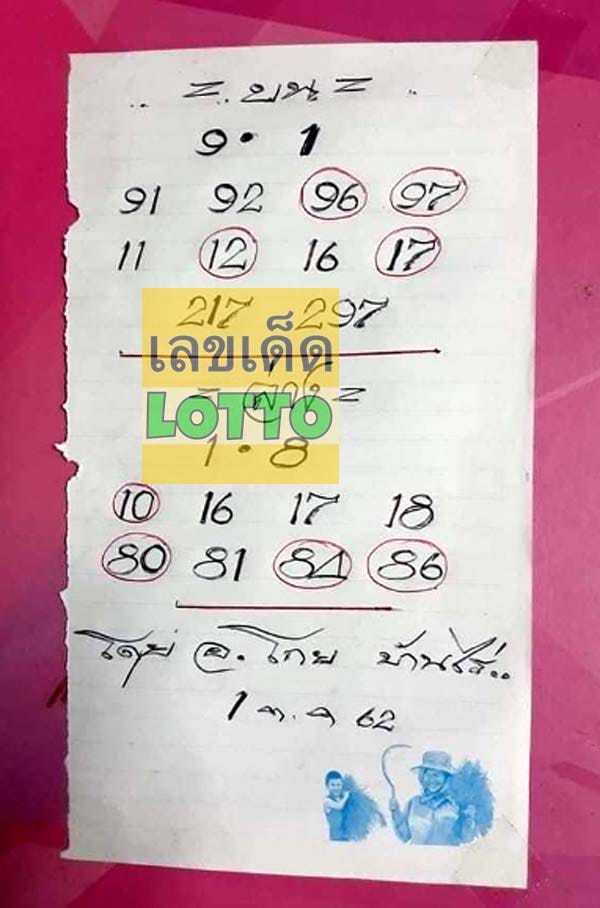 = บน =
9 · 1
91 92 96 97
11 12 16 17
217 297
เลขเด็ด
= ล่าง =
LOTTO
1 · 8
10 16 17 18
80 81 84 86
โดย อ. โกย บ้านไร่..
1 ต.ค 62